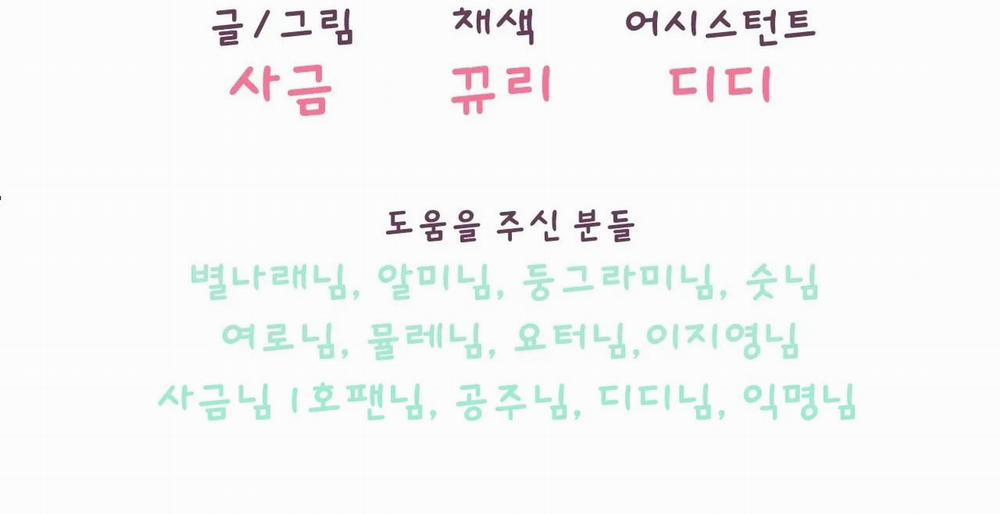 글/그림 채색 어시스턴트
사금 뀨리 디디
도움을 주신 분들
별나래님, 알미님, 둥그라미님, 숫님
여로님, 뮬레님, 요터님,이지영님
사금님 1호팬님, 공주님, 디디님, 익명님